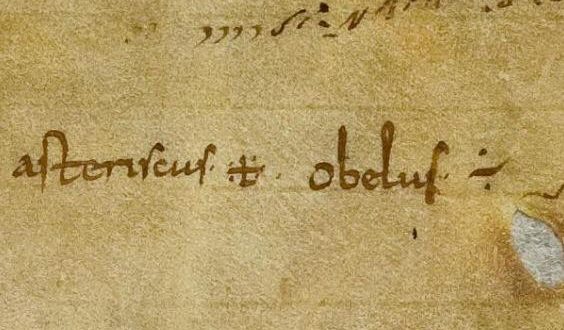 asteriscus · ※ · obelus · ÷